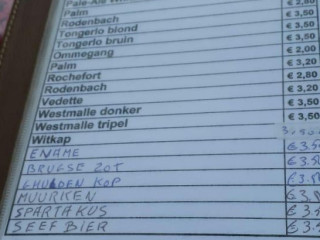 Pale-Ale € 2,80
Palm € 3,50
Rodenbach € 3,50
Tongerlo blond € 3,50
Tongerlo bruin € 3,50
Ommegang € 2,00
Palm € 3,20
Rochefort € 2,80
Rodenbach € 3,20
Vedette € 3,50
Westmalle donker € 3,50
Westmalle tripel
Witkap
ENAME € 3.5
BRUGSE ZOT € 3.5
GHULDEN KOP
MUURKEN
SPARTAKUS
SEEF BIER